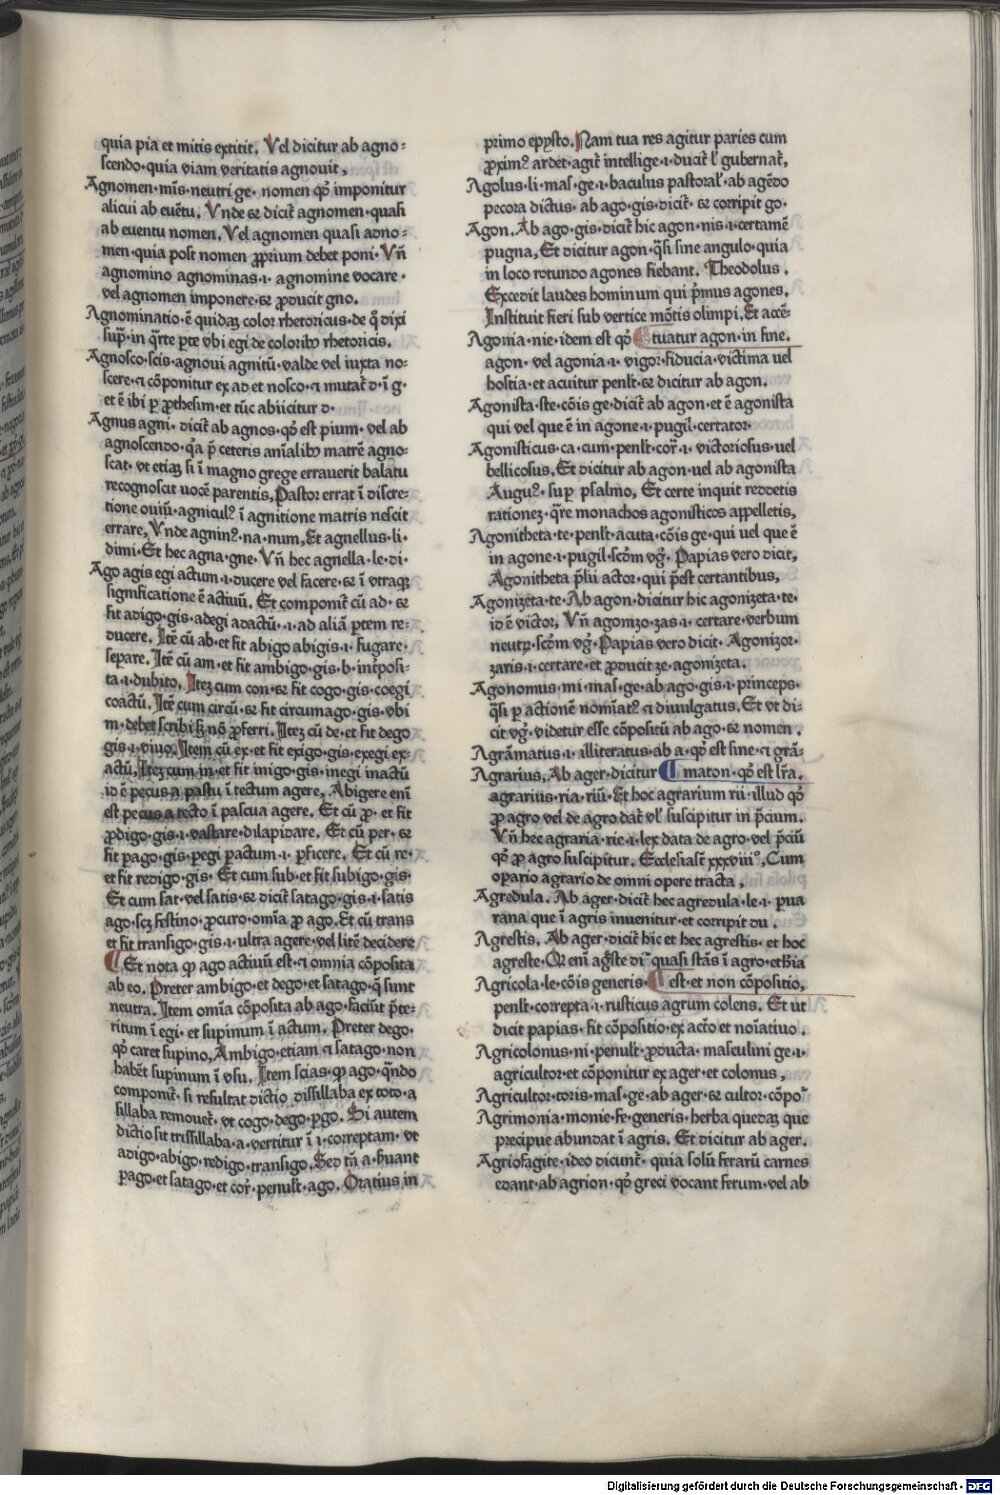 quia pia et mitis extitit. Vel dicitur ab agno⸗
scendo·quia viam veritatis agnouit,
Agnomen·mĩs·neutri ge· nomen qđ imponitur
alicui ab euẽtu, Vnde ⁊ dicit̃ agnomen·quasi
ab euentu nomen, Vel agnomen quasi adno⸗
men·quia post nomen ꝓprium debet poni· Vñ
agnomino agnominas·i· agnomine vocare·
vel agnomen imponere·⁊ ꝓducit gno.
Agnominatio·ẽ quidaꝫ color rhetoricus·de q̃ dixi
sup̃·in q̃rte p̃te vbi egi de coloribꝰ rhetoricis.
Agnosco·scis·agnoui agnitũ·valde vel iuxta no⸗
scere·⁊ cõponitur ex ad et nosco·⁊ mutat̃ d·ĩ g·
et ẽ ibi ꝑ ꝓthesim·et tũc abiicitur d·
Agnus agni· dicit̃ ab agnos·qđ est pium· vel ab
agnoscendo·q̃a p̃ ceteris aniãlibꝰ matrẽ agno⸗
scat· vt etiaꝫ si ĩ magno grege errauerit balatu
recognoscat vocẽ parentis, Pastor errat ĩ discre⸗
tione ouiũ·agniculꝰ ĩ agnitione matris nescit
errare, Vnde agninꝰ·na·num, Et agnellus·li·
dimi·Et hec agna·gne· Vñ hec agnella·le·di·
Ago agis egi actum·i·ducere vel facere·⁊ ĩ vtraqꝫ
significatione ẽ actiuũ. Et componit̃ cũ ad·⁊
fit adigo·gis·adegi adactũ··i·ad aliã p̃tem re⸗
ducere. Itẽ cũ ab·et fit abigo abigis·i·fugare·
separe. Itẽ cũ am·et fit ambigo·gis·b·int̃posi⸗
ta·i·dubito. Iteꝫ cum con·⁊ fit cogo·gis·coegi
coactũ. Itẽ cum circũ·⁊ fit circumago·gis·vbi
m·debet scribi sꝫ nõ ꝓferri. Iteꝫ cũ de·et fit dego
gis·i·viuo. Item cũ ex·et fit exigo·gis·exegi ex⸗
actũ, Iteꝫ cum in·et fit inigo·gis·inegi inactũ
id ẽ pecus a pastu ĩ tectum agere, Abigere enĩ
est pecus a tecto ĩ pascua agere. Et cũ ꝓ·et fit
ꝓdigo·gis·i·vastare·dilapidare. Et cũ per·⁊
fit pago·gis·pegi pactum·i· ꝑficere. Et cũ re·
et fit redigo·gis· Et cum sub·et fit subigo·gis·
Et cum sat·vel satis·⁊ dicit̃ satago·gis·i·satis
ago·scꝫ festino·ꝓcuro·omĩa ꝓ ago. Et cũ trans
et fit transigo·gis·i·ultra agere·vel litẽ decidere
¶ Et nota ꝙ ago actiuũ est·⁊ omnia cõposita
ab eo. Preter ambigo·et dego·et satago·q̃ sunt
neutra. Item omĩa cõposita ab ago·faciũt p̃te⸗
ritum ĩ egi·et supinum ĩ actum. Preter dego·
qđ caret supino, Ambigo·etiam ⁊ satago·non
habẽt supinum ĩ vsu. Item scias·ꝙ ago·q̃ndo
componit̃· si resultat dictio dissillaba ex toto·a
sillaba remouet̃·vt cogo·dego·ꝑgo. Si autem
dictio sit trissillaba·a·vertitur ĩ i·correptam·vt
adigo·abigo·redigo·transigo. Sed tñ a·ẜuant
ꝑago·et satago·et cor̃·penult̃·ago. Oratius in
primo epysto. Nam tua res agitur paries cum
ꝓximꝰ ardet·agit̃ intellige·i·ducit̃ l̃ gubernat̃,
Agolus·li·mas̃·ge·i·baculus pastoral̃·ab agẽdo
pecora dictus· ab ago·gis·dicit̃·⁊ corripit go·
Agon. Ab ago·gis·dicit̃ hic agon·nis·i·certamẽ
pugna, Et dicitur agon·q̃si sine angulo·quia
in loco rotundo agones fiebant. Theodolus.
Excedit laudes hominum qui p̃mus agones.
Instituit fieri sub vertice mõtis olimpi. Et accẽ⸗
Agonia·nie·idem est qđ ¶ tuatur agon·in fine.
agon· vel agonia·i· vigor·fiducia·victima uel
hostia·et acuitur penl̃t·⁊ dicitur ab agon.
Agonista·ste·cõis ge·dicit̃ ab agon·et ẽ agonista
qui vel que ẽ in agone·i·pugil·certator·
Agonisticus·ca·cum·penl̃t·cor̃·i·victoriosus·uel
bellicosus. Et dicitur ab agon·uel ab agonista
Auguꝰ·suꝑ psalmo, Et certe inquit reddetis
rationeꝫ·q̃re monachos agonisticos appelletis,
Agonitheta·te·penl̃t·acuta·cõis ge·qui uel que ẽ
in agone·i·pugil·scdm vg̃. Papias vero dicit,
Agonitheta p̃lii actor·qui p̃est certantibus,
Agonizeta·te·Ab agon·dicitur hic agonizeta·te·
id ẽ victor, Vñ agonizo·zas·i·certare·verbum
neutꝝ·scdm vg̃·Papias vero dicit· Agonizor·
zaris·i·certare·et ꝓducit ze·agonizeta.
Agonomus·mi·mas̃·ge·ab ago·gis·i·princeps·
q̃si ꝑ actionẽ nomĩatꝰ·⁊ diuulgatus. Et vt di⸗
cit vg̃·videtur esse cõpositũ ab ago·⁊ nomen.
Agrãmatus·i·illiteratus·ab a·qđ est sine·⁊ grã⸗
Agrarius, Ab ager·dicitur ¶ maton·qđ est lr̃a.
agrarius·ria·riũ· Et hoc agrarium rii·illud qđ
ꝓ agro vel de agro dat̃ vl̃ suscipitur in p̃cium.
Vñ hec agraria·rie·i·lex data de agro·vel p̃ciũ
qđ ꝓ agro suscipitur. Ecclesiast̃ xxxviii°, Cum
opario agrario de omni opere tracta,
Agredula. Ab ager·dicit̃ hec agredula·le·i· pua
rana que ĩ agris inuenitur·et corripit du.
Agrestis. Ab ager·dicit̃ hic et hec agrestis·et hoc
agreste·Qr̃ enĩ ag̃ste di⁻ quasi stãs ĩ agro·etB̃ia
Agricola·le·cõis generis·¶ est·et non cõpositio,
penl̃t·correpta·i·rusticus agrum colens. Et ut
dicit papias· fit cõpositio·ex act̃o et noĩatiuo.
Agricolonus·ni·penult̃·ꝓducta·masculini ge·i·
agricultor·et cõponitur ex ager·et colonus,
Agricultor·toris·mas̃·ge·ab ager·⁊ cultor·cõpo⁻
Agrimonia·monie·fe·generis·herba quedaꝫ que
precipue abundat ĩ agris. Et dicitur ab ager.
Agriofagite·ideo dicunt̃· quia solũ ferarũ carnes
edant·ab agrion·qđ greci vocant ferum·vel ab
Digitalisierung gefördert durch die Deutsche Forschungsgemeinschaft - DFG